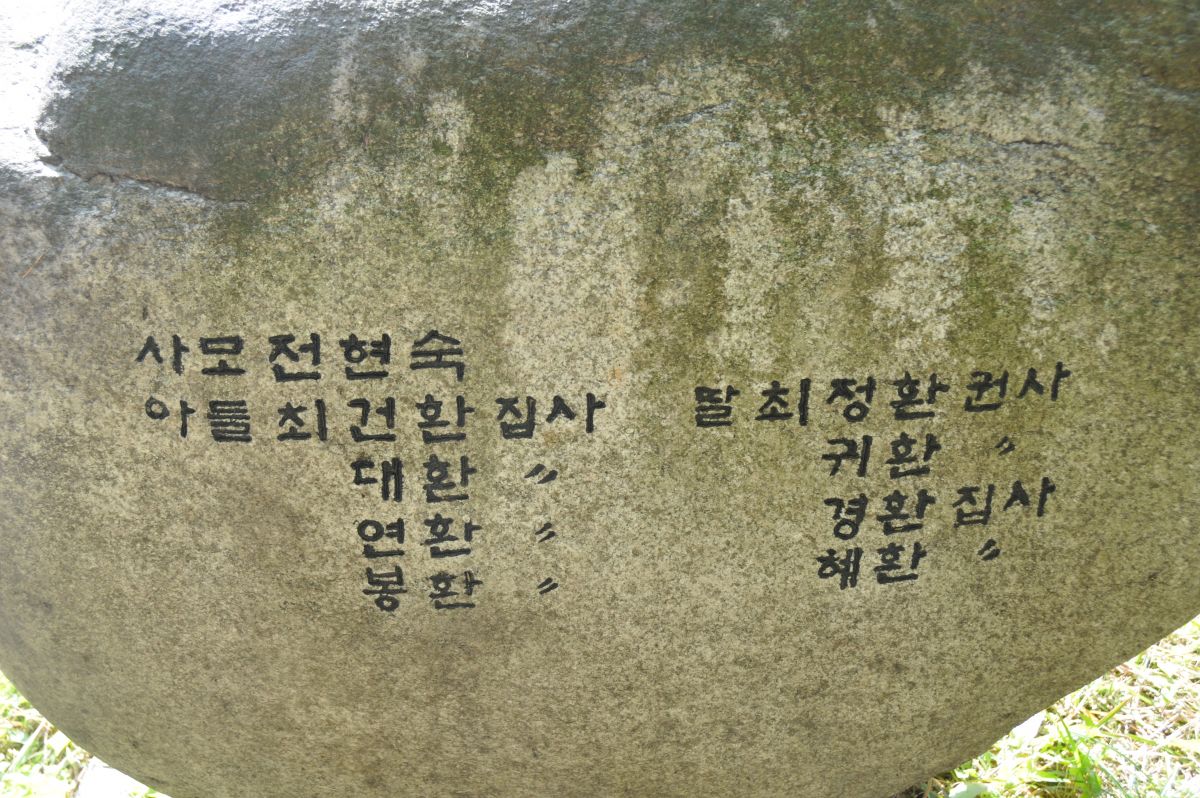 사모 전현숙
아들 최건환 집사
대환 〃
연환 〃
봉환 〃
딸 최정환 권사
귀환 〃
경환 집사
혜환 〃